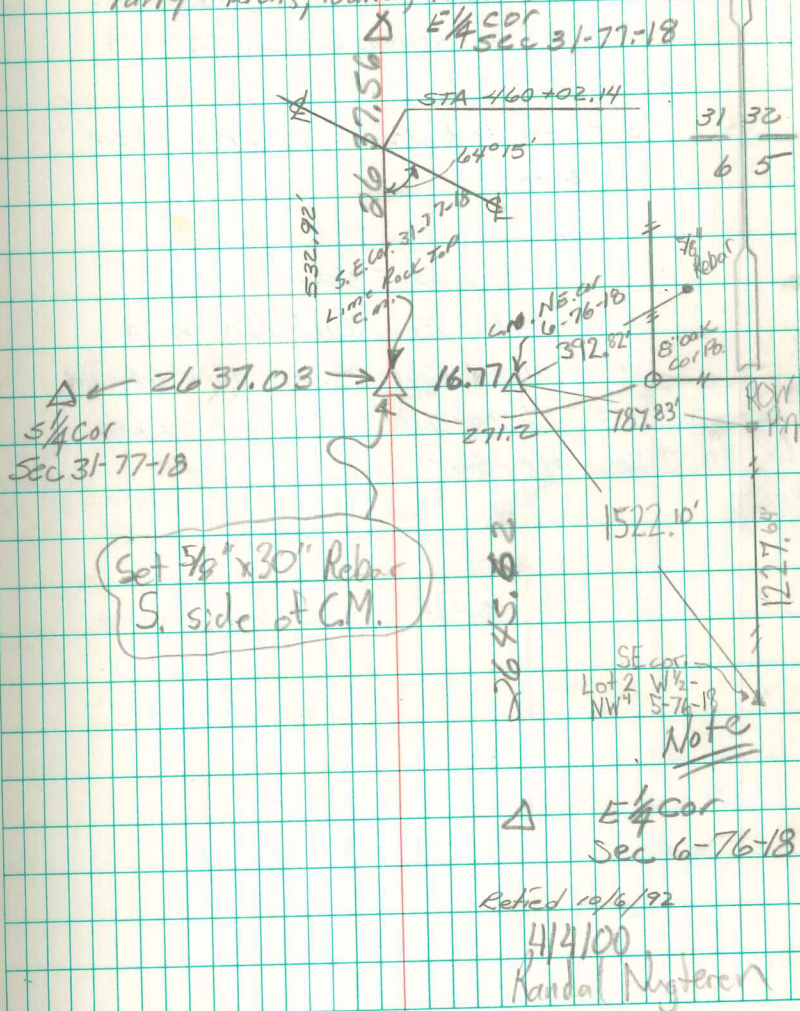 E 1/4 cor
Sec 31-77-18
2637.56
STA 460+02.14
64°15'
31 32
6 5
532.92'
S.E. Cor. 31-77-18
Lime Rock Top
C.M.
5/8"
Rebar
NE. cor
6-76-18
392.82'
cor Po.
2637.03
16.77
271.2
787.83'
ROW
Pin
S 1/4 Cor
Sec 31-77-18
1522.10'
1227.64'
Set 5/8" x 30" Rebar
S. side of C.M.
2645.62
SE cor.
Lot 2 W 1/2 -
NW 4 5-76-18
Note
E 1/4 Cor
Sec 6-76-18
Retied 10/6/92
4/4/00
Randal Nugteren